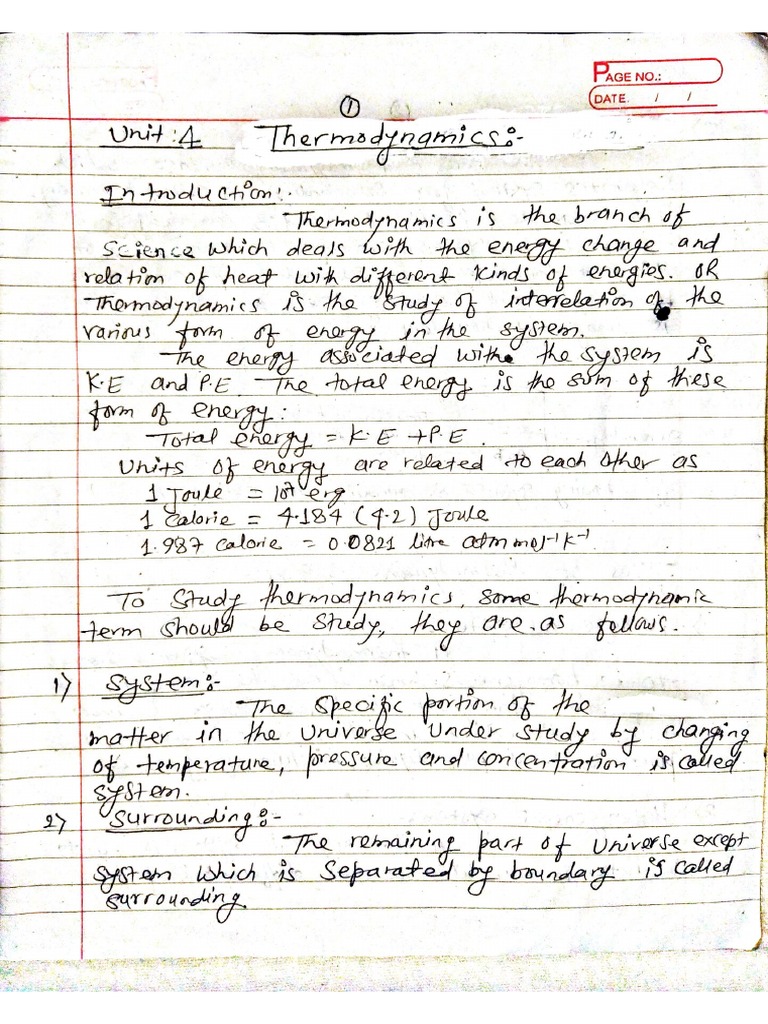 PAGE NO.:
DATE. / /
①
Unit: 4 Thermodynamics:-
Introduction:.
Thermodynamics is the branch of
Science which deals with the energy change and
relation of heat with different kinds of energies. OR
Thermodynamics is the study of interrelation of the
various form of energy in the system.
The energy associated with the system is
K.E and P.E. The total energy is the sum of these
form of energy:
Total energy = K.E + P.E.
Units of energy are related to each other as
1 Joule = 10⁷ erg
1 Calorie = 4.184 (4.2) Joule
1.987 Calorie = 0.0821 litre atm mol⁻¹ K⁻¹
To study thermodynamics, some thermodynamic
term should be study, they are as follows.
1) System:-
The specific portion of the
matter in the Universe under study by changing
of temperature, pressure and concentration is called
system.
2) Surrounding:-
The remaining part of Universe except
system which is separated by boundary is called
surrounding.